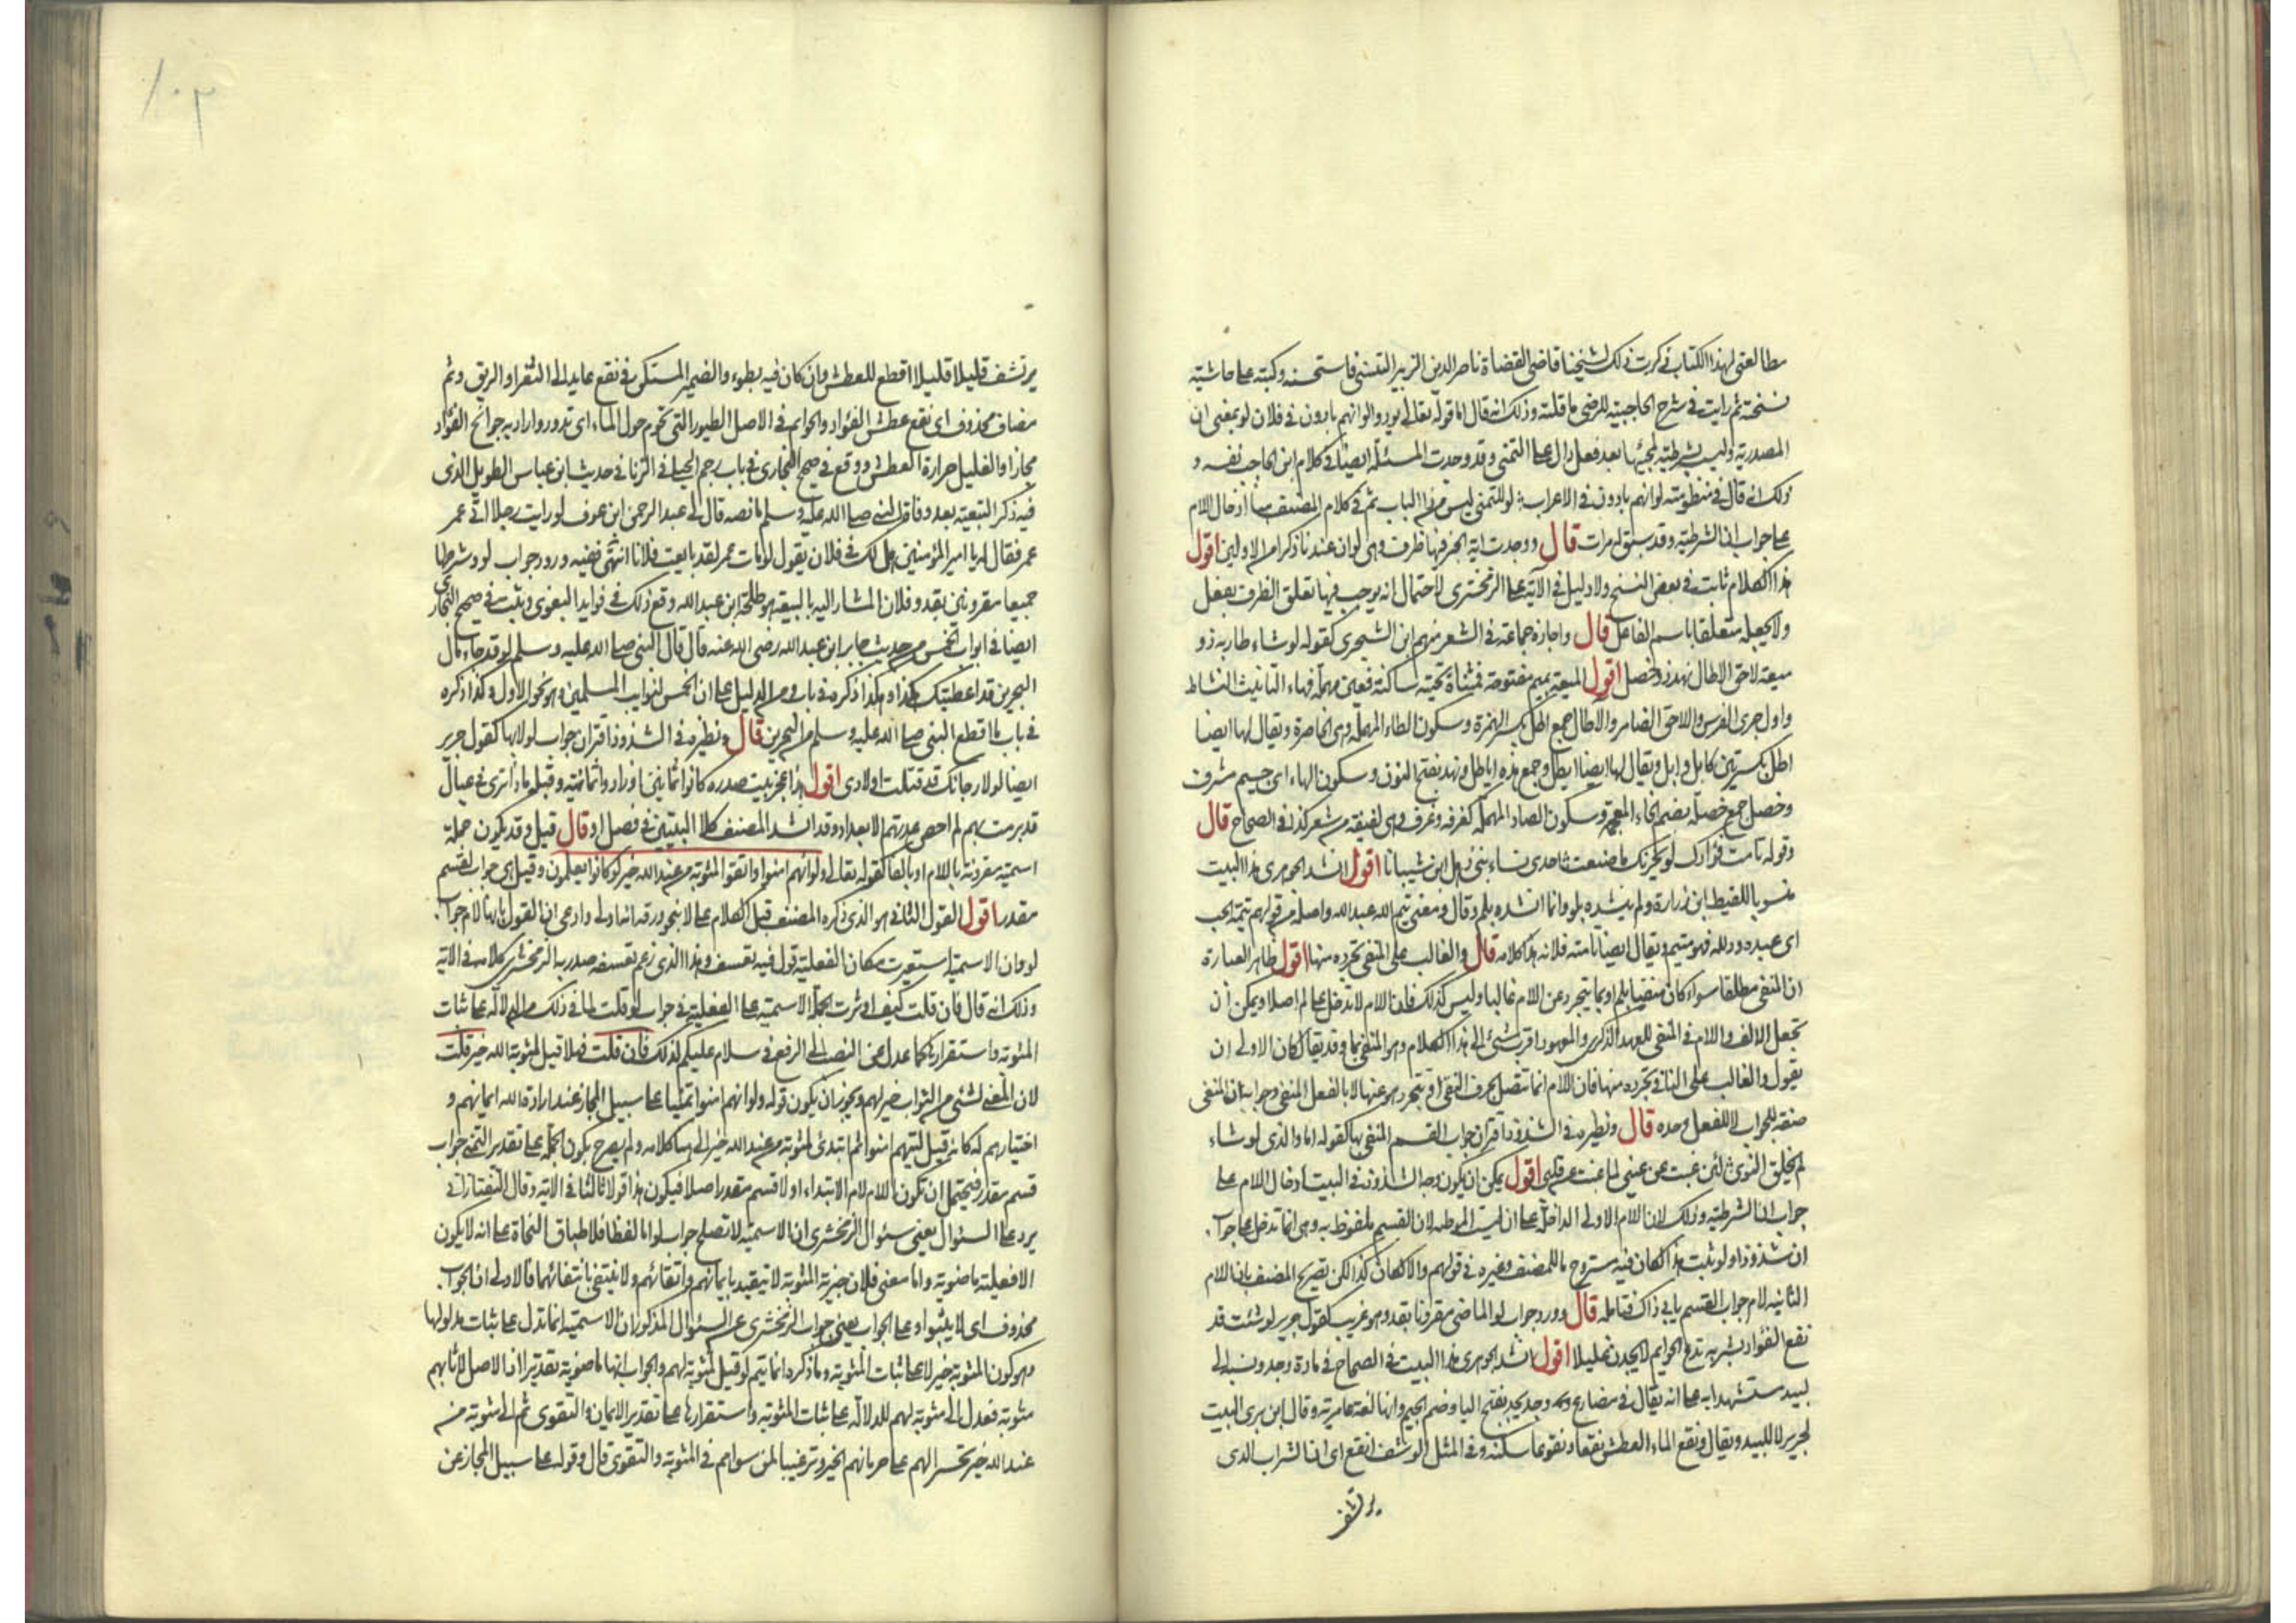 مطالعتى لهذا الكتاب فذكرت ذلك لشيخنا قاضى القضاة ناصر الدين الزبير التنسى فاستحسنه وكتبه على حاشية
نسخته ثم رايت فى شرح الحاجبية للرضى ما قلته وذلك انه قال اما قوله تعالى يودوا لو انهم بادون فى فلان لو بمعنى ان
المصدرية وليست بشرطية لمجيئها بعد فعل دال على التمنى وقد وجدت المسئلة ايضا فى كلام ابن الحاجب نفسه و
ذلك انه قال فى منظومته لو انهم بادون فى الاعراب لو للتمنى ليس من ذا الباب ثم فى كلام المصنف هنا ادخال اللام
على جواب ان الشرطية وقد سبق له مرات قال ووجدت اية الخبر فيها ظرف وهى لو ان عندنا ذكرا من الاولين اقول
هذا الكلام ثابت فى بعض النسخ ولا دليل فى الآية على الزمخشرى لاحتمال انه يوجب فيها تعلق الظرف بفعل
ولا يجعله متعلقا باسم الفاعل قال واجازه جماعة فى الشعر منهم ابن الشجرى كقوله لو شاء طار به ذو
ميعة لاحق الاطال نهد ذو خصل اقول الميعة بميم مفتوحة فمثناة تحتية ساكنة فعين مهملة فهاء التانيث النشاط
واول جرى الفرس واللاحق الضامر والاطال جمع اطل بكسر الهمزة وسكون الطاء المهملة وهى الخاصرة ويقال لها ايضا
اطل بكسرتين كابل وابل ويقال لها ايضا ايطل وجمع هذه اياطل ونهد بفتح النون وسكون الهاء اى جسيم مشرف
وخصل جمع خصلة بضم الخاء المعجمة وسكون الصاد المهملة كغرفة وغرف وهى لفيفة من شعر كذا فى الصحاح قال
وقوله تامت فؤادك لو يحزنك ما صنعت احدى نساء بنى ذهل ابن شيبانا اقول انشد الجوهرى هذا البيت
منسوبا للقيط ابن زرارة ولم ينشده بلو وانما انشده بلم وقال ومعنى تيم الله عبد الله واصله من قولهم تيمه الحب
اى عبده وذلله فهو متيم ويقال ايضا تامته فلانة هذا كلامه قال والغالب على المنفى تجرده منها اقول ظاهر العبارة
ان المنفى مطلقا سواء كان منفيا بلم او بما يتجرد عن اللام غالبا وليس كذلك فان اللام لا تدخل على لم اصلا ويمكن ان
تجعل الالف واللام فى المنفى للعهد الذكرى والمعهود اقرب شئ الى هذا الكلام وهو المنفى بما وقد يقال كان الاولى ان
يقول والغالب على النافى تجرده منها فان اللام انما تتصل بحرف النفى او يتجرد هو عنها لا بالفعل المنفى وجوابه ان المنفى
صفة للجواب لا للفعل وحده قال ونظيره فى الشذوذ اقتران جواب القسم المنفى بها كقوله اما والذى لو شاء
لم يخلق النوى لئن غبت عن عينى لما غبت عن قلبى اقول يمكن ان يكون وجه الشذوذ فى البيت ادخال اللام على
جواب ان الشرطية وذلك لان اللام الاولى الداخلة على ان ليست الموطئة لان القسم ملفوظ به وهى انما تدخل على جواب
ان شذوذا ولو ثبت هذا لكان فيه ستروح ما للمصنف وغيره فى قولهم والا لكان كذا لكن تصريح المصنف بان اللام
الثانية لام جواب القسم يابى ذاك فتامله قال وورد جواب لو الماضى مقرونا بقد وهو غريب كقول جرير لو شئت قد
نقع الفؤاد بشربه تدع الحوايم لا يجدن غليلا اقول انشد الجوهرى هذا البيت فى الصحاح فى مادة وجد ونسبه الى
لبيد مستشهدا به على انه يقال فى مضارع وجد يجد بفتح اليا وضم الجيم وانها لغة عامرية وقال ابن برى البيت
لجرير لا للبيد ويقال نقع الماء العطش نقعا ونقوعا سكنه وفى المثل الرشف انقع اى ان الشراب الذى
يرتشف
١٠٣
يرتشف قليلا قليلا اقطع للعطش وان كان فيه بطوء والضمير المستكن فى نقع عايد الى الثغر او الريق وثم
مضاف محذوف اى نقع عطش الفؤاد والحوايم فى الاصل الطيور التى تحوم حول الماء اى تدور واراد به جوانح الفؤاد
مجازا والغليل حرارة العطش ووقع فى صحيح البخارى فى باب رجم الحبلى فى الزنا فى حديث ابن عباس الطويل الذى
فيه ذكر البيعة بعد وفاة النبى صلى الله عليه وسلم ما نصه قال لى عبد الرحمن ابن عوف لو رايت رجلا اتى عمر
عمر فقال له يا امير المؤمنين هل لك فى فلان يقول لو مات عمر لقد بايعت فلانا انتهى ففيه ورود جواب لو وشرطها
جميعا مقرونين بقد وفلان المشار اليه بالبيعة هو طلحة ابن عبد الله وقع ذلك فى فوايد البغوى وثبت فى صحيح البخارى
ايضا فى ابواب الخمس من حديث جابر ابن عبد الله رضى الله عنه قال قال النبى صلى الله عليه وسلم لو قد جاء مال
البحرين قد اعطيتك هكذا وهكذا ذكره فى باب ومن الدليل على ان الخمس لنوايب المسلمين وهو نحو الاول وكذا ذكره
فى باب ما اقطع النبى صلى الله عليه وسلم من البحرين قال ونظيره فى الشذوذ اقتران جواب لولا بها كقول جرير
ايضا لولا رجاؤك قد قتلت اولادى اقول هذا عجز بيت صدره كانوا ثمانين او زادوا ثمانية وقبله ماذا ترى فى عيال
قد برمت بهم لم احص عدتهم الا بعداد وقد انشد المصنف كلا البيتين فى فصل او قال قيل وقد يكون جملة
اسمية مقرونة باللام او بالفا كقوله تعالى ولو انهم امنوا واتقوا لمثوبة من عند الله خير لو كانوا يعلمون وقيل هى جواب لقسم
مقدر اقول القول الثانى هو الذى ذكره المصنف قبل الكلام على لا بنحو ورقة انه اولى وادعى ان القول بانها لام جواب
لو وان الاسمية استعيرت مكان الفعلية قول فيه تعسف وهذا الذى زعم تعسفه صدر به الزمخشرى كلامه فى الاية
وذلك انه قال فان قلت كيف اوثرت الجملة الاسمية على الفعلية فى جواب لو قلت لما فى ذلك من الدلالة على ثبات
المثوبة واستقرارها كما عدل عن النصب الى الرفع فى سلام عليكم لذلك فان قلت فهلا قيل لمثوبة الله خير قلت
لان المعنى لشئ من الثواب خير لهم ويجوز ان يكون قوله ولو انهم امنوا تمنيا على سبيل المجاز عند ارادة الله ايمانهم و
اختيارهم له كانه قيل ليتهم امنوا ثم ابتدئ لمثوبة من عند الله خير الى هنا كلامه ولم يصرح بكون الجملة على تقدير التمنى جواب
قسم مقدر فيحتمل ان تكون اللام لام الابتداء او لا قسم مقدر اصلا فيكون هذا قولا ثالثا فى الاية وقال التفتازانى
يرد على السئوال يعنى سئوال الزمخشرى ان الاسمية لا تصلح جواب لو اما لفظا فلاطباق النحاة على انه لا يكون
الا فعلية ماضوية واما معنى فلان خيرية المثوبة لا تتقيد بايمانهم واتقائهم ولا تنتفى بانتفائهما فالاولى ان الجواب
محذوف اى لا يثبوا وعلى الجواب يعنى جواب الزمخشرى عن السئوال المذكور ان الاسمية انما تدل على ثبات مدلولها
وهو كون المثوبة خير لا على ثبات المثوبة وما ذكره انما يتم لو قيل لمثوبة لهم والجواب انها ماضوية تقديرا اذ الاصل لاثابهم
مثوبة فعدل الى مثوبة لهم للدلالة على ثبات المثوبة واستقرارها على تقدير الايمان والتقوى ثم الى مثوبة من
عند الله خير تحسرا لهم على حرمانهم الخير وترغيبا لمن سواهم فى المثوبة والتقوى قال وقوله على سبيل المجاز عن